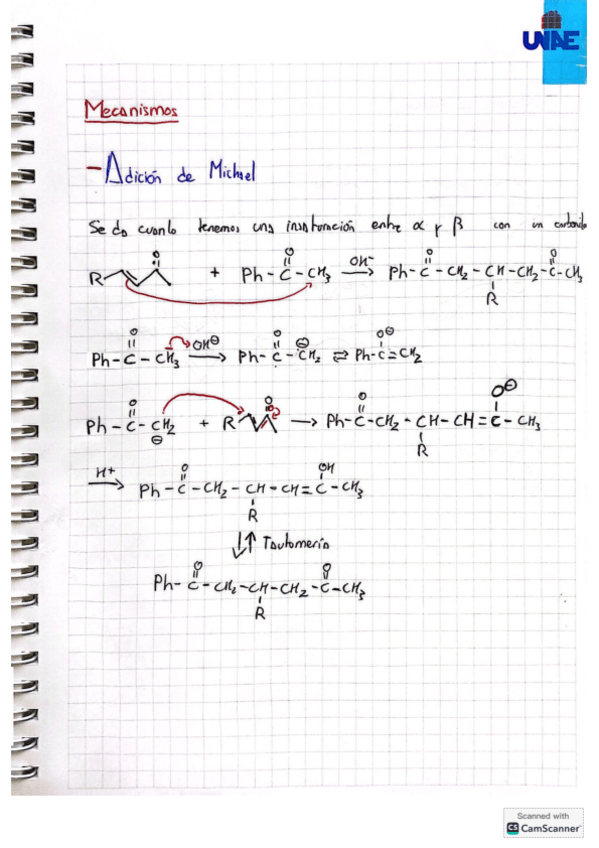 UNAE
Mecanismos
- Adición de Michael
Se da cuando tenemos una insaturación entre α y β con un carbonilo
R O + Ph-C(=O)-CH3 OH⁻ → Ph-C(=O)-CH2-CH(R)-CH2-C(=O)-CH3
Ph-C(=O)-CH3 OH⊖ → Ph-C(=O)-CH2⊖ ⇌ Ph-C(O⊖)=CH2
Ph-C(=O)-CH2⊖ + R O → Ph-C(=O)-CH2-CH(R)-CH=C(O⊖)-CH3
H+ → Ph-C(=O)-CH2-CH(R)-CH=C(OH)-CH3
↓↑ Tautomería
Ph-C(=O)-CH2-CH(R)-CH2-C(=O)-CH3
Scanned with
CS CamScanner